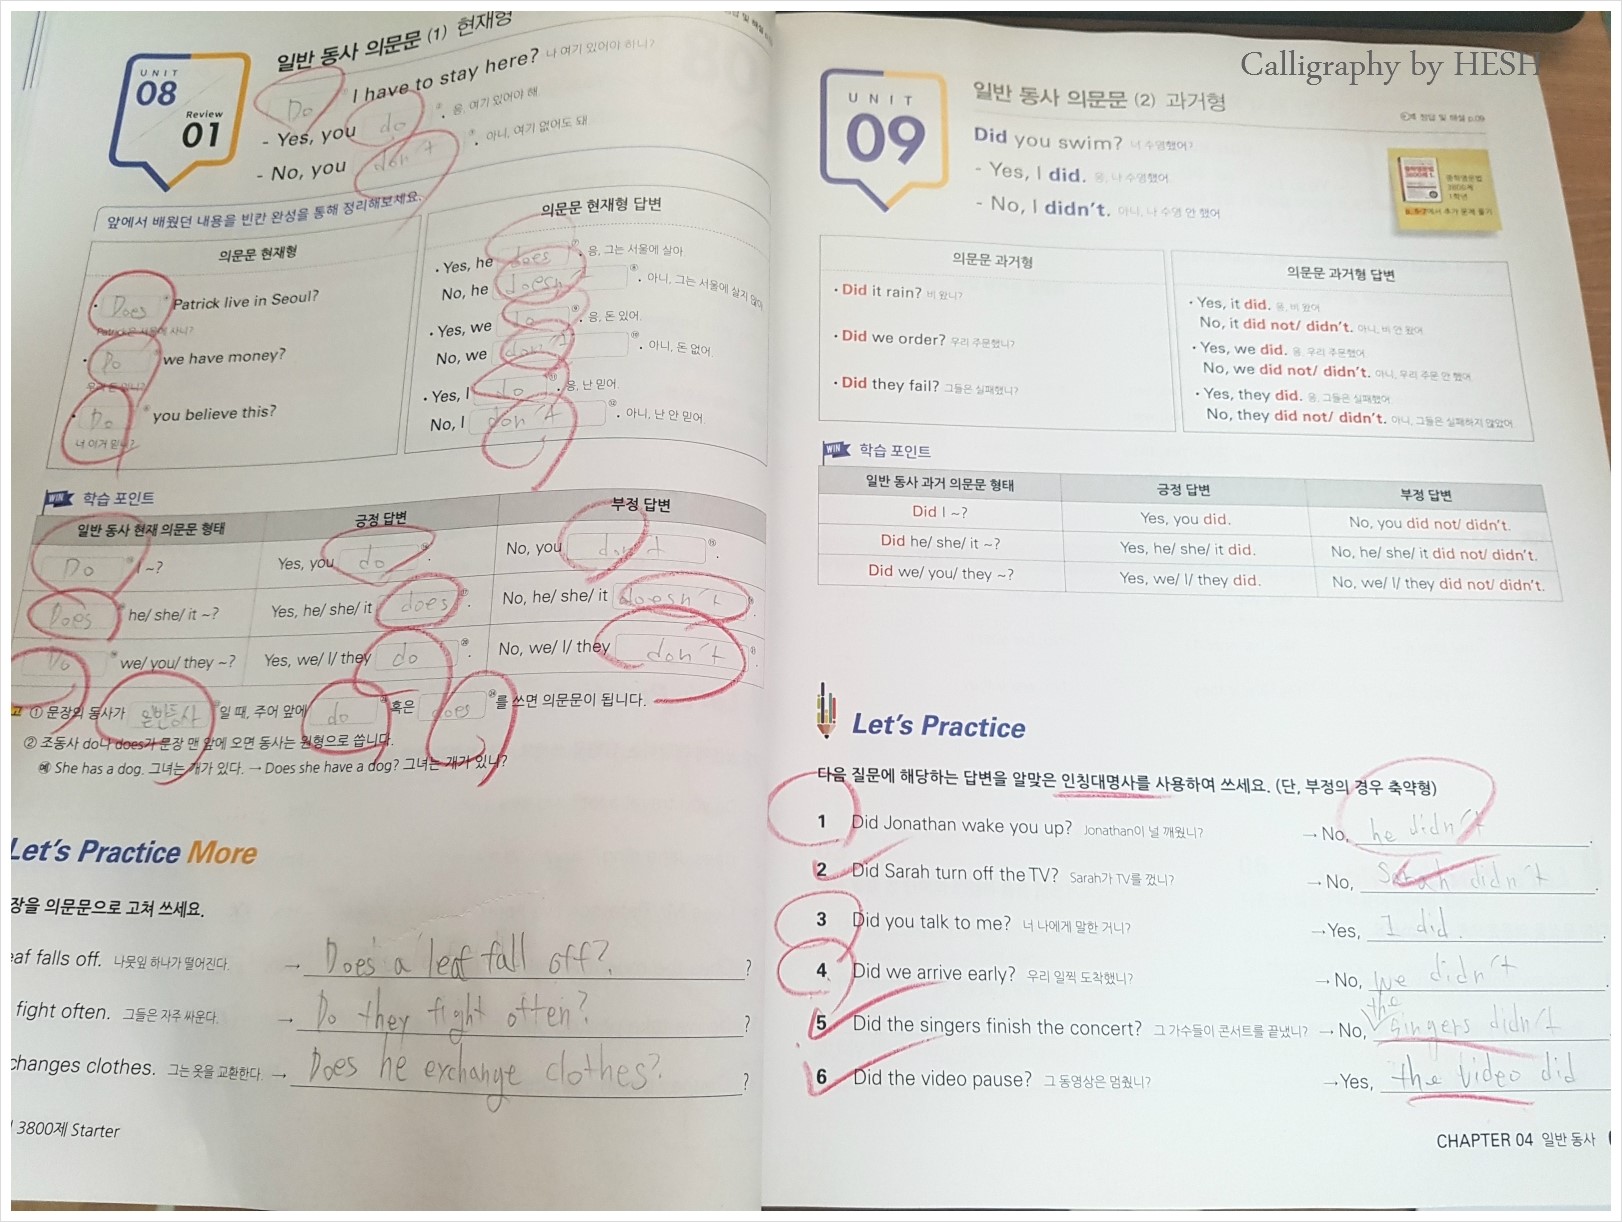 Calligraphy by HESH
UNIT
08
Review
01
일반 동사 의문문 (1) 현재형
Do I have to stay here? 나 여기 있어야 하니?
- Yes, you do. 응, 여기 있어야 해
- No, you don't. 아니, 여기 없어도 돼
앞에서 배웠던 내용을 빈칸 완성을 통해 정리해보세요.
의문문 현재형
· Does Patrick live in Seoul?
Patrick은 서울에 사니?
· Do we have money?
· Do you believe this?
너 이거 믿니?
의문문 현재형 답변
· Yes, he does. 응, 그는 서울에 살아
No, he doesn't. 아니, 그는 서울에 살지 않아
· Yes, we do. 응, 돈 있어.
No, we don't. 아니, 돈 없어.
· Yes, I do. 응, 난 믿어.
No, I don't. 아니, 난 안 믿어.
WIN 학습 포인트
일반 동사 현재 의문문 형태 긍정 답변 부정 답변
Do I ~? Yes, you do. No, you don't.
Does he/ she/ it ~? Yes, he/ she/ it does. No, he/ she/ it doesn't.
Do we/ you/ they ~? Yes, we/ I/ they do. No, we/ I/ they don't.
① 문장의 동사가 일반동사 일 때, 주어 앞에 do 혹은 does 를 쓰면 의문문이 됩니다.
② 조동사 do나 does가 문장 맨 앞에 오면 동사는 원형으로 씁니다.
예 She has a dog. 그녀는 개가 있다. → Does she have a dog? 그녀는 개가 있니?
Let's Practice More
장을 의문문으로 고쳐 쓰세요.
eaf falls off. 나뭇잎 하나가 떨어진다. → Does a leaf fall off? ?
fight often. 그들은 자주 싸운다. → Do they fight often? ?
changes clothes. 그는 옷을 교환한다. → Does he exchange clothes? ?
3800제 Starter
UNIT
09
일반 동사 의문문 (2) 과거형
정답 및 해설 p.09
Did you swim? 너 수영했어?
- Yes, I did. 응, 나 수영했어.
- No, I didn't. 아니, 나 수영 안 했어
중학영문법
3800제
1학년
에서 추가 문제 풀기
의문문 과거형
· Did it rain? 비 왔니?
· Did we order? 우리 주문했니?
· Did they fail? 그들은 실패했니?
의문문 과거형 답변
· Yes, it did. 응, 비 왔어
No, it did not/ didn't. 아니, 비 안 왔어.
· Yes, we did. 응, 우리 주문했어.
No, we did not/ didn't. 아니, 우리 주문 안 했어
· Yes, they did. 응, 그들은 실패했어.
No, they did not/ didn't. 아니, 그들은 실패하지 않았어
WIN 학습 포인트
일반 동사 과거 의문문 형태 긍정 답변 부정 답변
Did I ~? Yes, you did. No, you did not/ didn't.
Did he/ she/ it ~? Yes, he/ she/ it did. No, he/ she/ it did not/ didn't.
Did we/ you/ they ~? Yes, we/ I/ they did. No, we/ I/ they did not/ didn't.
Let's Practice
다음 질문에 해당하는 답변을 알맞은 인칭대명사를 사용하여 쓰세요. (단, 부정의 경우 축약형)
1 Did Jonathan wake you up? Jonathan이 널 깨웠니? → No, he didn't.
2 Did Sarah turn off the TV? Sarah가 TV를 껐니? → No, Sarah didn't.
3 Did you talk to me? 너 나에게 말한 거니? → Yes, I did.
4 Did we arrive early? 우리 일찍 도착했니? → No, we didn't.
5 Did the singers finish the concert? 그 가수들이 콘서트를 끝냈니? → No, the singers didn't
6 Did the video pause? 그 동영상은 멈췄니? → Yes, the video did
CHAPTER 04 일반 동사